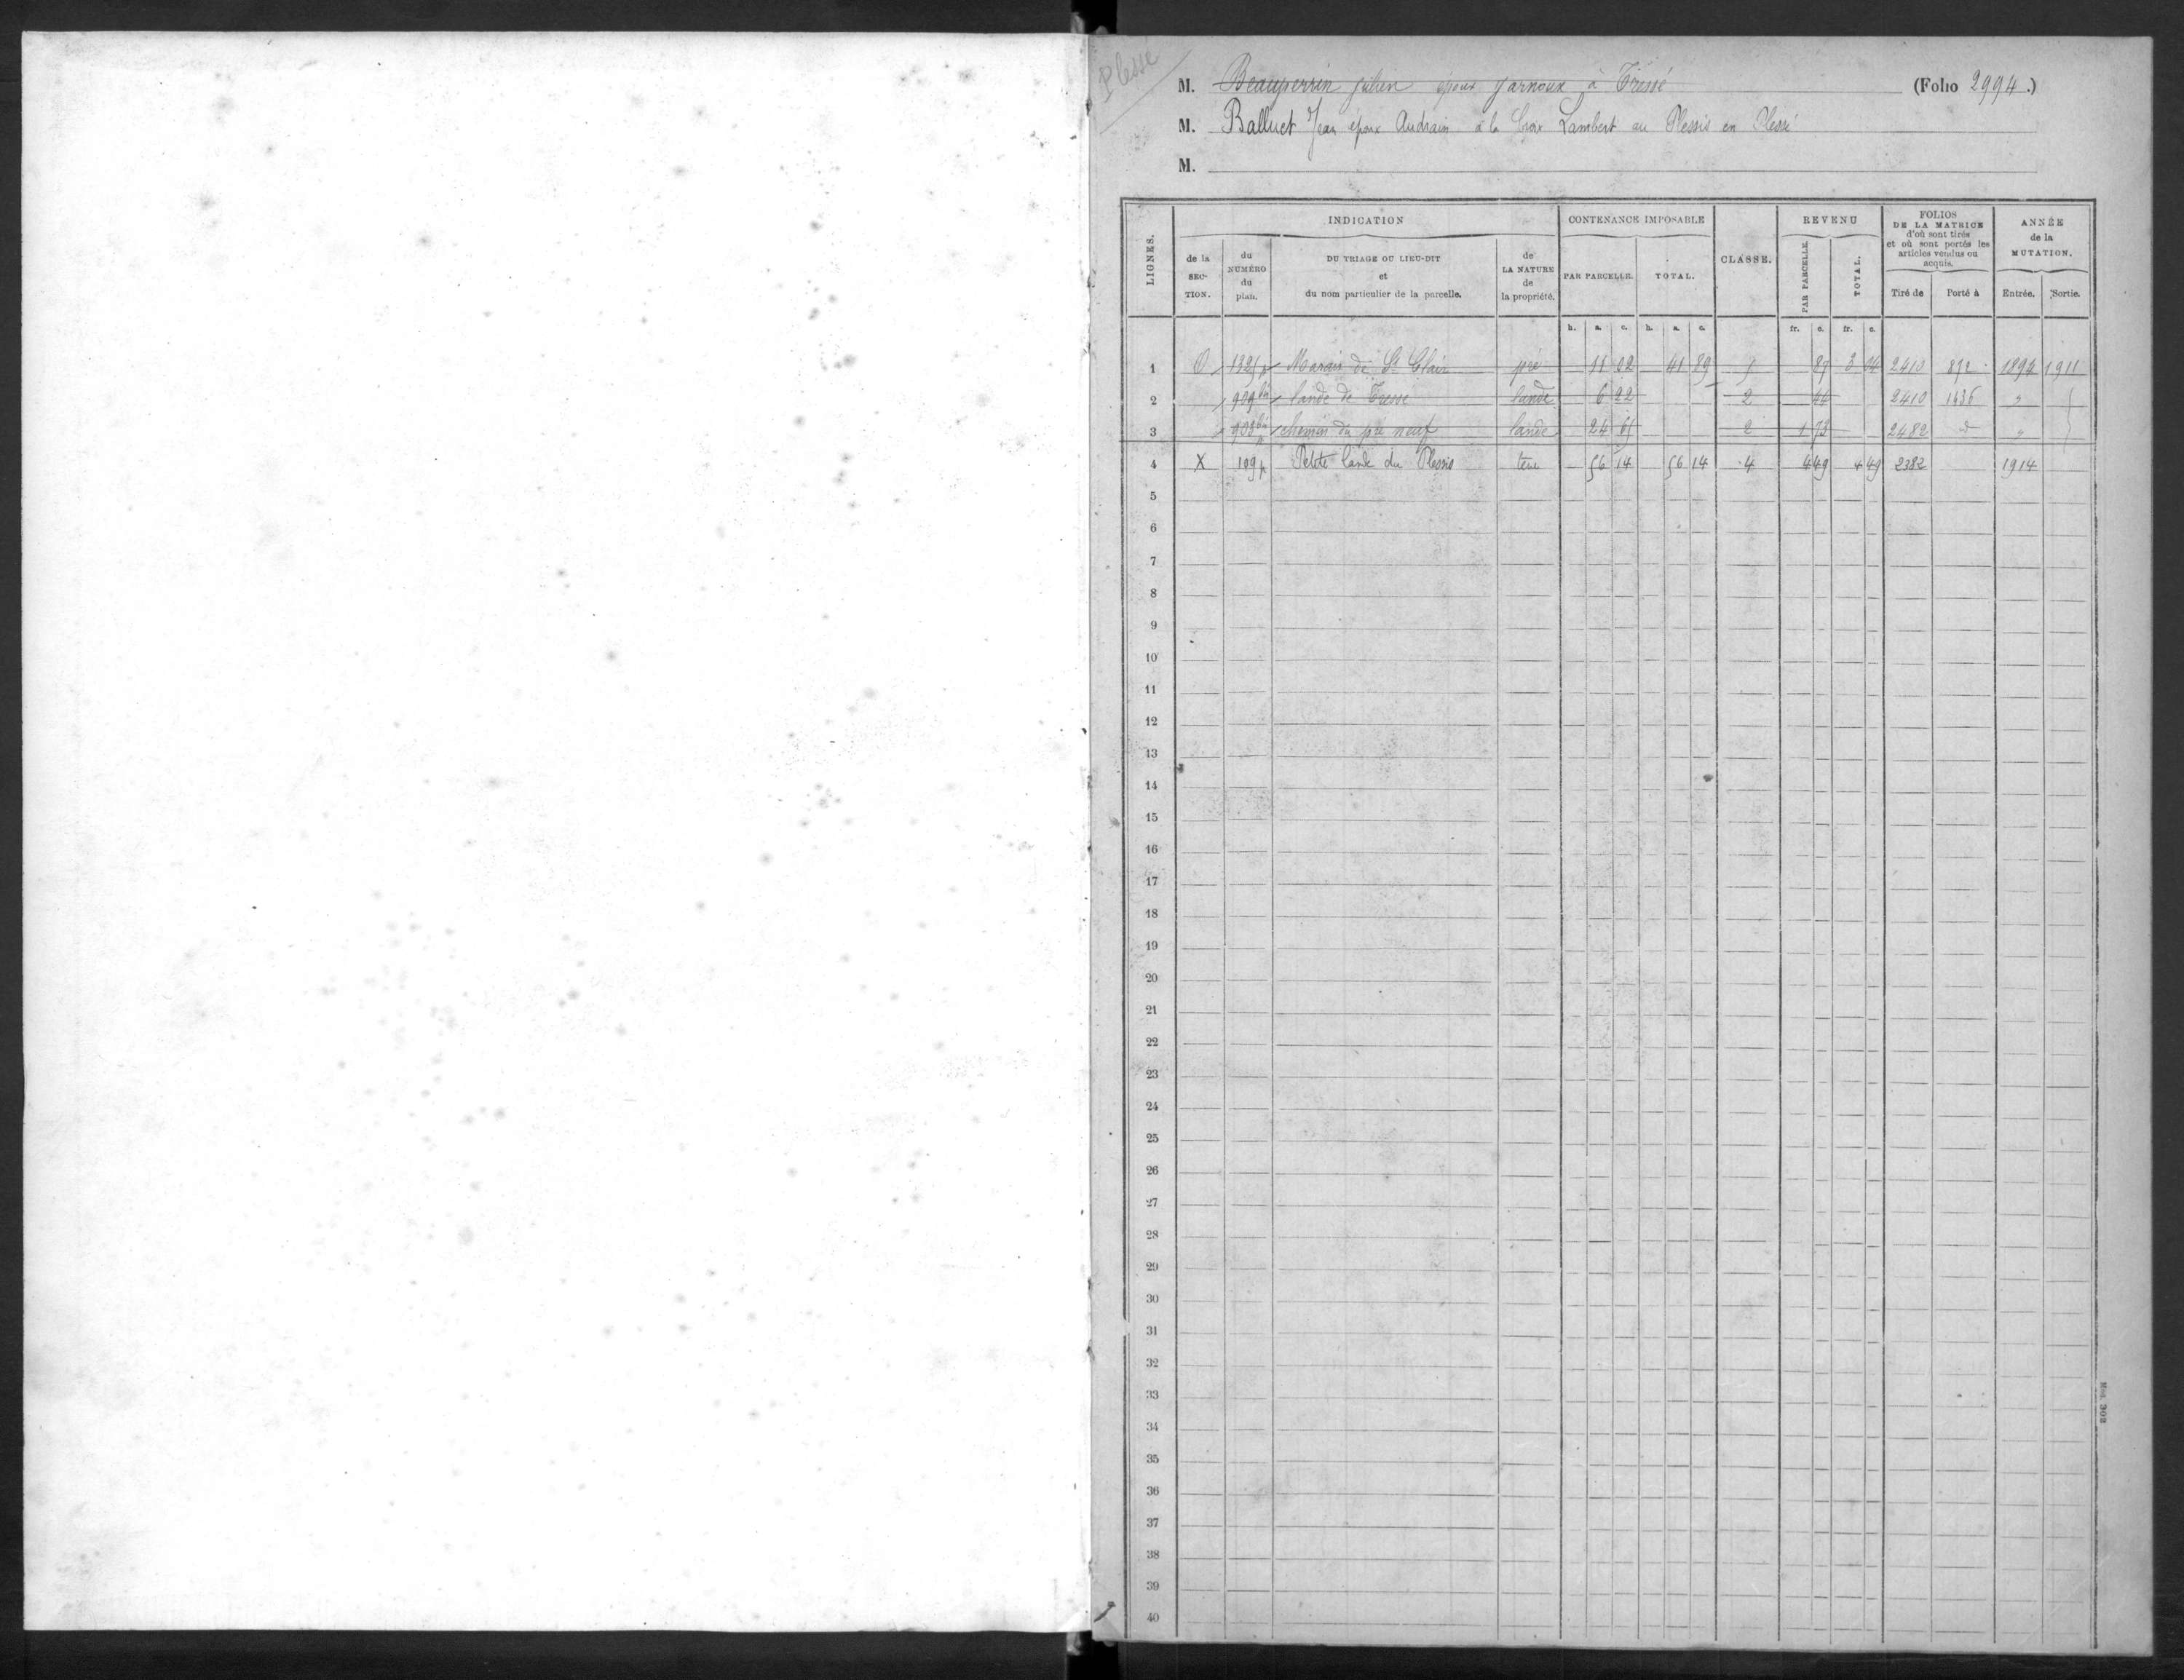 Plessé
M. Beauperrin Julien époux Jarnoux à Tressé (Folio 2994.)
M. Balluet Jean époux Audrain à la Croix Lambert au Plessis en Plessé
M.
LIGNES. INDICATION CONTENANCE IMPOSABLE CLASSE. REVENU FOLIOS DE LA MATRICE d'où sont tirés et où sont portés les articles vendus ou acquis. ANNÉE de la MUTATION.
de la SECTION. du NUMÉRO du plan. DU TRIAGE OU LIEU-DIT et du nom particulier de la parcelle. de LA NATURE de la propriété. PAR PARCELLE. TOTAL. PAR PARCELLE. TOTAL. Tiré de Porté à Entrée. Sortie.
h. a. c. h. a. c. fr. c. fr. c.
1 O 1325 p Marais de St Clair pré 11 02 41 89 5 87 3 04 2410 892 1894 1911
2 909 bis lande de Tressé lande 6 22 2 44 2410 1436 "
3 903 bis p chemin du pré neuf lande 24 65 2 1 73 2482 d° "
4 X 109 p Petite lande du Plessis terre 56 14 56 14 4 4 49 4 49 2382 1914
5
6
7
8
9
10
11
12
13
14
15
16
17
18
19
20
21
22
23
24
25
26
27
28
29
30
31
32
33
34
35
36
37
38
39
40
Mod. 302